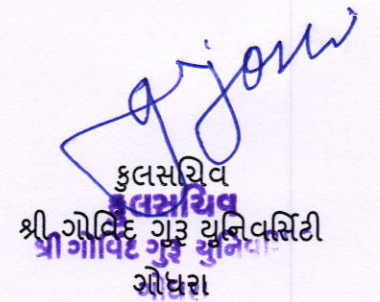 કુલસચિવ
કુલસચિવ
શ્રી ગોવિંદ ગુરૂ યુનિવર્સિટી
શ્રી ગોવિંદ ગુરૂ
ગોધરા